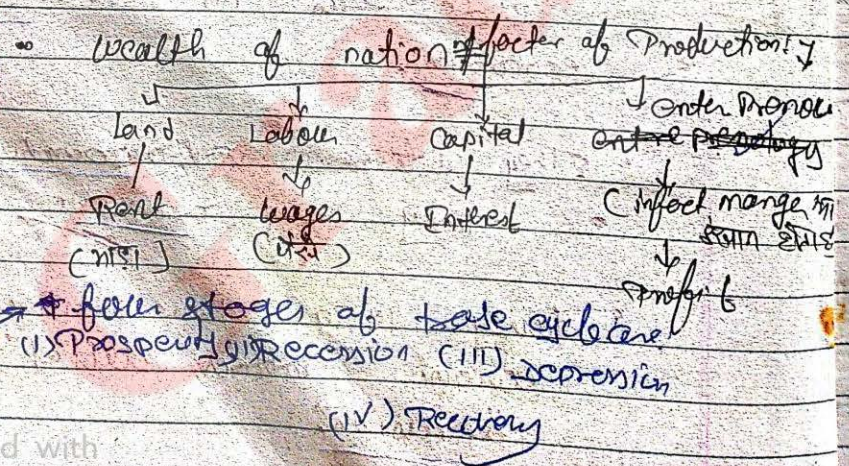 wealth of nation # factor of Production:-
Land Labour Capital Enter Prenou
Rent wages Interest
(भाड़ा)
Profit
* four stages of trade cycle are
(I) Prosperity (II) Recession (III) Depression
(IV) Recovery
d with